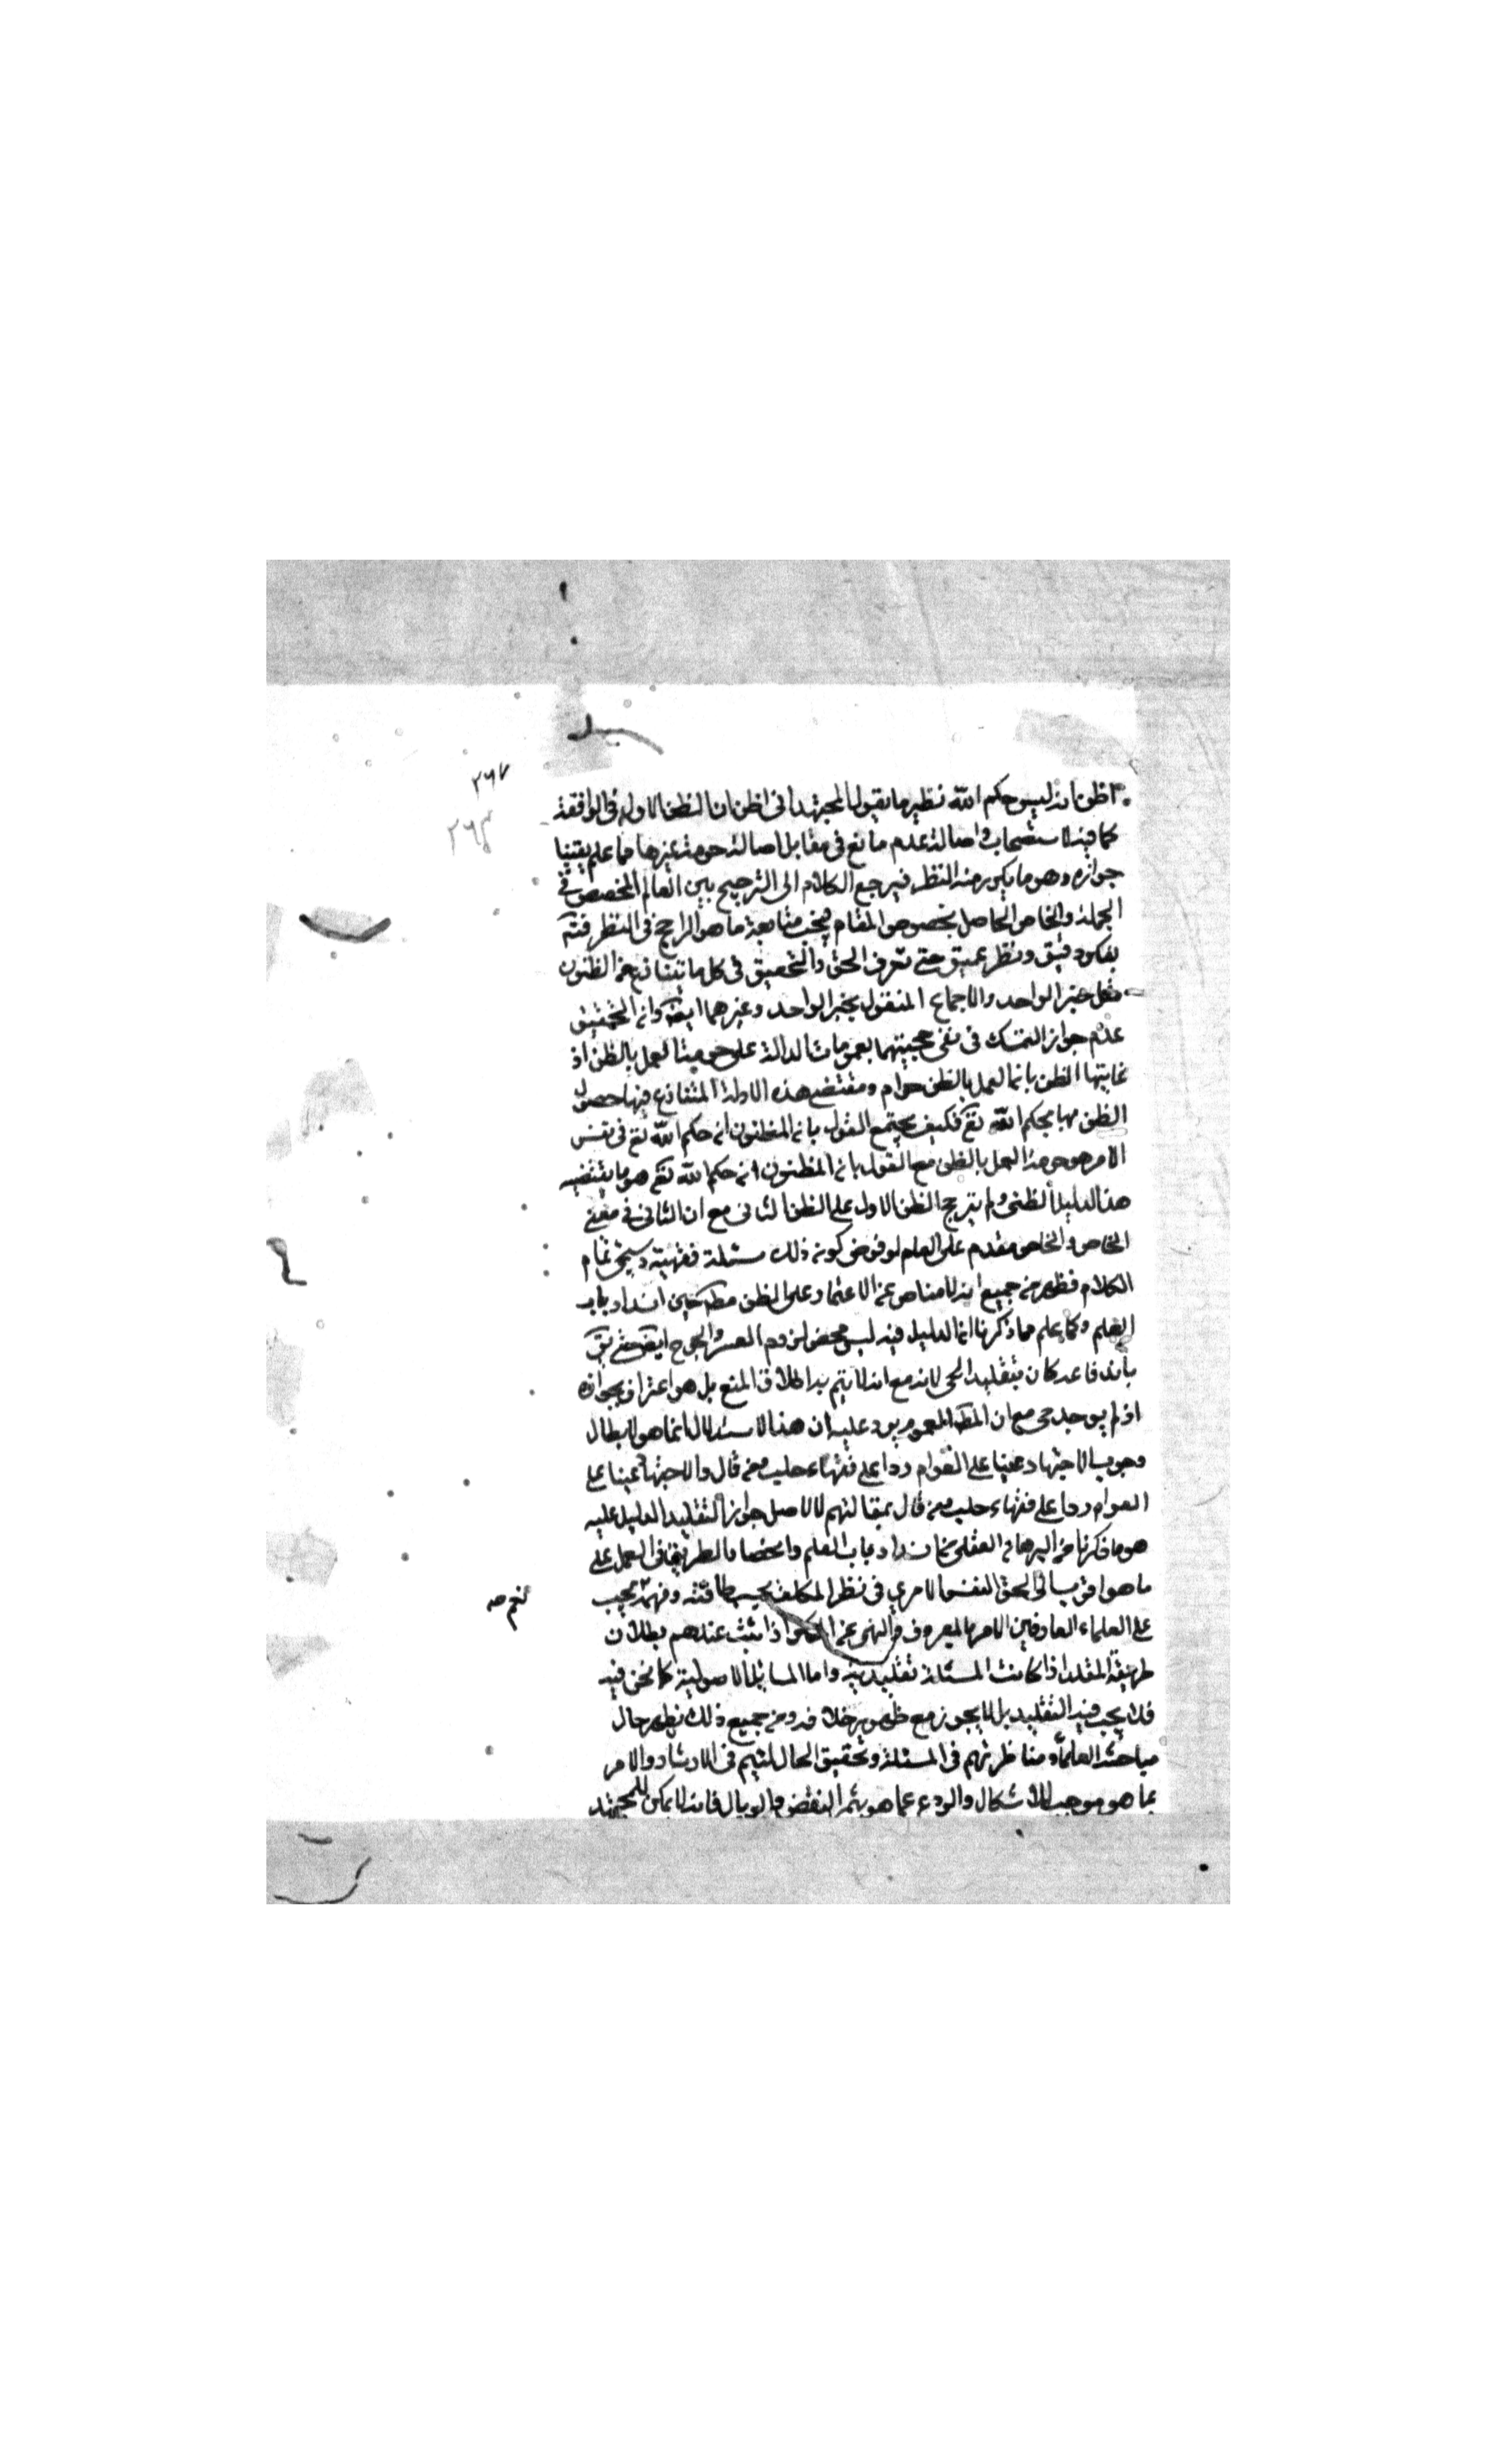 ٢٦٧
٢٦٣
اظن انه ليس حكم الله نظير ما يقول المجتهد انى اظن ان الظن الاول فى الواقعة
كما فيه الاستصحاب واصالة عدم مانع فى مقابل اصالة حرمة غيرها مما علم يقينا
جوازه وهو ما يكون منه النظر فيرجع الكلام الى الترجيح بين العام المخصص فى
الجملة والخاص الحاصل بخصوص المقام فيجب متابعة ما هو الراجح فى النظر فتد
بفكر دقيق ونظر عميق حتى تعرف الحق والتحقيق فى كل ما يتنازع من الظنون
مثل خبر الواحد والاجماع المنقول بخبر الواحد وغيرهما ايضا وان التحقيق
عدم جواز التمسك فى نفى حجيتهما بعمومات الدالة على حرمة العمل بالظن اذ
غايتها الظن بان العمل بالظن حرام ومقتضى هذه الادلة المتنازع فيها حصول
الظن بها بحكم الله تع فكيف يجتمع القول بان المظنون ان حكم الله تع فى نفس
الامر هو حرمة العمل بالظن مع القول بان المظنون ان حكم الله تع هو ما يقتضيه
هذا الدليل الظنى ولم يترجح الظن الاول على الظن الثانى مع ان الثانى فى معنى
الخاص والخاص مقدم على العام لو فرض كون ذلك مسئلة فقهية وسيجئ تمام
الكلام فظهر من جميع انه لا مناص عن الاعتماد على الظن مط حين انسداد باب
العلم وكما علم مما ذكرنا ان الدليل فيه ليس محض لزوم العسر والحرج ايض حتى يق
بانه قاعد كان بتقليد الحى لانه مع انه لا يتم به اطلاق المنع بل هو اعتراف بجوازه
اذ لم يوجد حى مع ان المط العموم يرد عليه ان هذا الاستدلال انما هو لابطال
وجوب الاجتهاد عينيا على العوام ردا على فقهاء حلب من قال والاجتهاد عينا على
العوام ردا على فقهاء حلب من قال بمقالتهم لا لاصل جواز التقليد الدليل عليه
هو ما ذكرنا من البرهان العقلى من انسداد باب العلم وانحصار الطريق فى العمل على
ما هو اقرب الى الحق النفس الامرى فى نظر المكلف بحسب طاقته وفهمه يجب
نعم صه
على العلماء العارفين الامر بالمعروف والنهى عن المنكر اذا ثبت عندهم بطلان
طريقة المقلد اذا كانت المسئلة تقليدية واما المسائل الاصولية كما نحن فيه
فلا يجب فيه التقليد بل لا يجوز مع ظهور خلافه ومن جميع ذلك يظهر حال
مباحثة العلماء ومناظرتهم فى المسئلة وتحقيق الحال لتيم فى الارشاد والامر
بما هو موجب للاشكال والردع عما هو يثمر النقض والوبال فانه لا يمكن للمجتهد